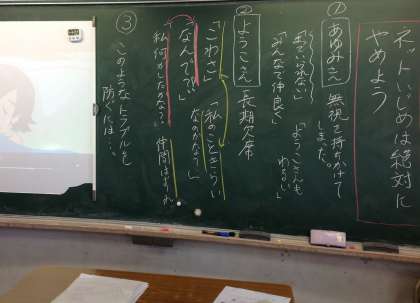 ネットいじめは絶対に
やめよう
① あゆみさん 無視で持ちかけて
しまった。
「みんなで仲良く」
「ようこさんも
わるい」
② ようこさん 長期欠席
「こわさ」
「私のこときらい
なのかなぁ」
「なんで?」
「私何かしたかな?」
仲間はずれ
③ このようなトラブルを
防ぐには…。